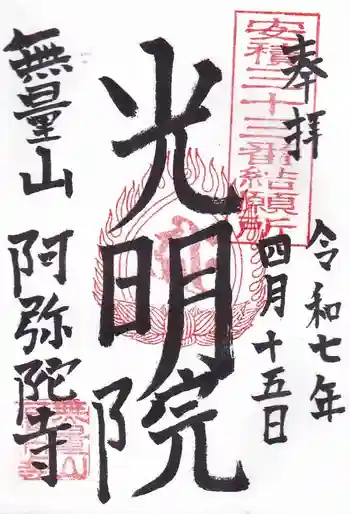 奉拝
令和七年
四月十五日
安積三十三番結願所
光明院
無量山 阿弥陀寺
無量山